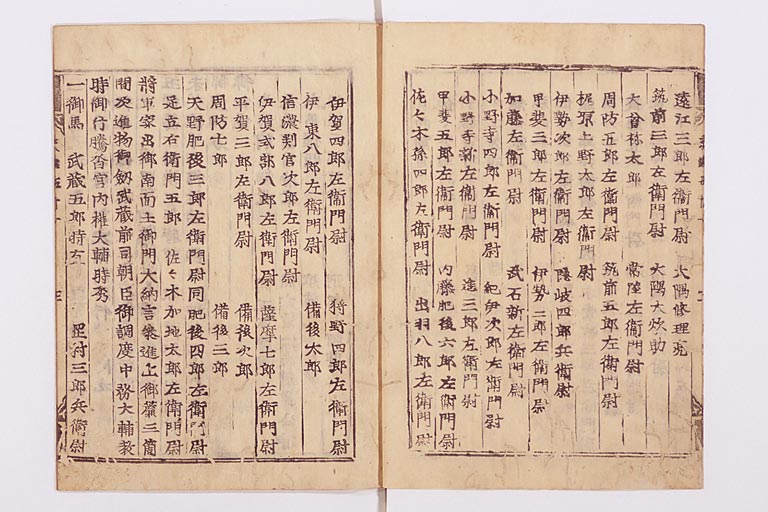 遠江三郎左衛門尉 大隅修理亮
筑前三郎左衛門尉 大隅大炊助
大曽祢太郎 常陸左衛門尉
周防五郎左衛門尉 筑前五郎左衛門尉
梶原上野太郎左衛門尉
伊勢次郎左衛門尉 隠岐四郎兵衛尉
甲斐三郎左衛門尉 伊勢三郎左衛門尉
加藤左衛門尉 武石新左衛門尉
小野寺四郎左衛門尉 紀伊次郎左衛門尉
小野寺新左衛門尉 進三郎左衛門尉
甲斐五郎左衛門尉 内藤肥後六郎左衛門尉
佐々木孫四郎左衛門尉 出羽八郎左衛門尉
伊賀四郎左衛門尉 狩野四郎左衛門尉
伊東八郎左衛門尉 備後太郎
信濃判官次郎左衛門尉
伊賀式部八郎左衛門尉 薩摩七郎左衛門尉
平賀三郎左衛門尉 備後次郎
周防七郎 備後三郎
天野肥後三郎左衛門尉同肥後四郎左衛門尉
足立右衛門五郎 佐々木加地太郎左衛門尉
将軍家出御南面土御門大納言参進上御簾三箇
間次進物御剱武蔵前司朝臣御調度中務大輔教
時御行騰沓宮内権大輔時秀
一御馬 武蔵五郎時 三郎兵衛尉